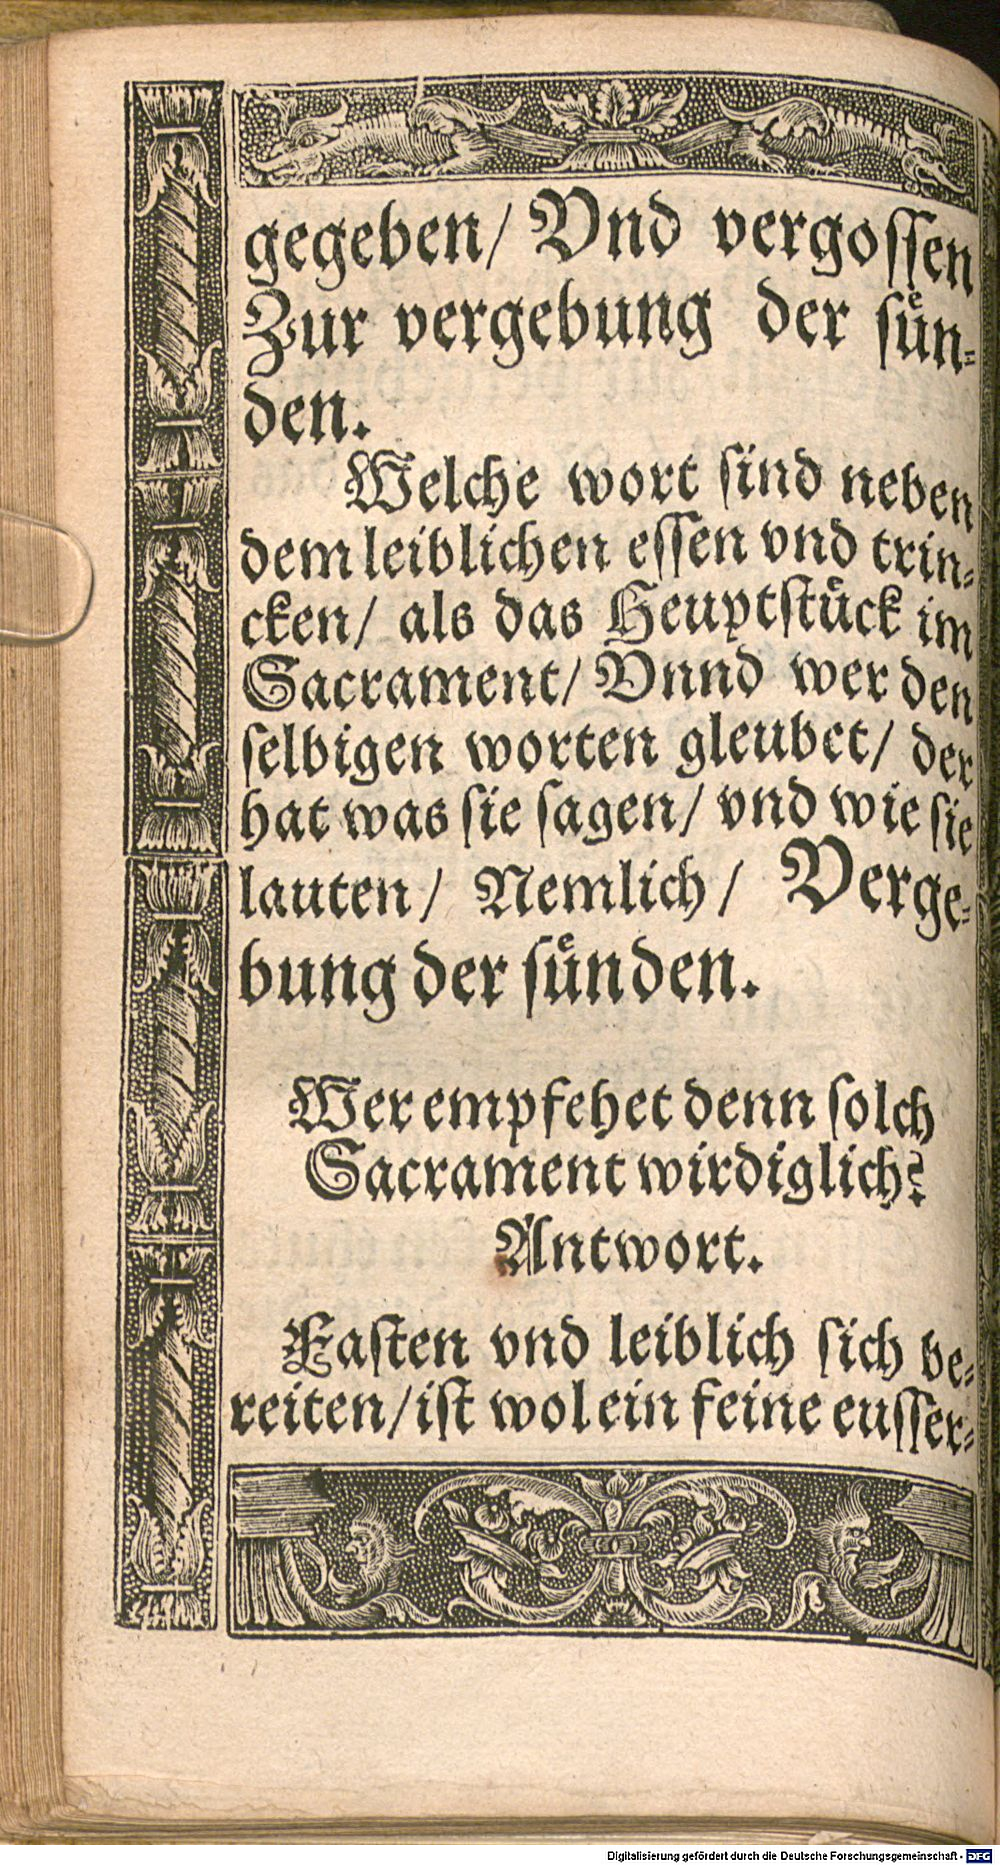 gegeben/ Vnd vergossen
Zur vergebung der suͤn-
den.
Welche wort sind neben
dem leiblichen essen vnd trin-
cken/ als das Heuptstuͤck im
Sacrament/ Vnnd wer den
selbigen worten gleubet/ der
hat was sie sagen/ vnd wie sie
lauten/ Nemlich/ Verge-
bung der suͤnden.
Wer empfehet denn solch
Sacrament wirdiglich?
Antwort.
Fasten vnd leiblich sich be-
reiten/ ist wol ein feine eusser-
Digitalisierung gefördert durch die Deutsche Forschungsgemeinschaft - DFG